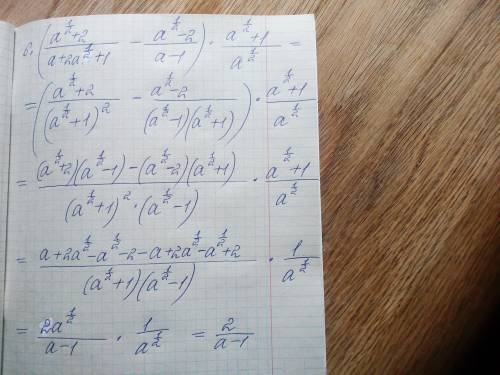 6. ((a^(1/2)+2)/(a+2a^(1/2)+1) − (a^(1/2)−2)/(a−1)) · (a^(1/2)+1)/a^(1/2) =
= ((a^(1/2)+2)/(a^(1/2)+1)^2 − (a^(1/2)−2)/((a^(1/2)−1)(a^(1/2)+1))) · (a^(1/2)+1)/a^(1/2)
= ((a^(1/2)+2)(a^(1/2)−1)−(a^(1/2)−2)(a^(1/2)+1))/((a^(1/2)+1)^2·(a^(1/2)−1)) · (a^(1/2)+1)/a^(1/2)
= (a+2a^(1/2)−a^(1/2)−2−a+2a^(1/2)−a^(1/2)+2)/((a^(1/2)+1)(a^(1/2)−1)) · 1/a^(1/2)
= 2a^(1/2)/(a−1) · 1/a^(1/2) = 2/(a−1)